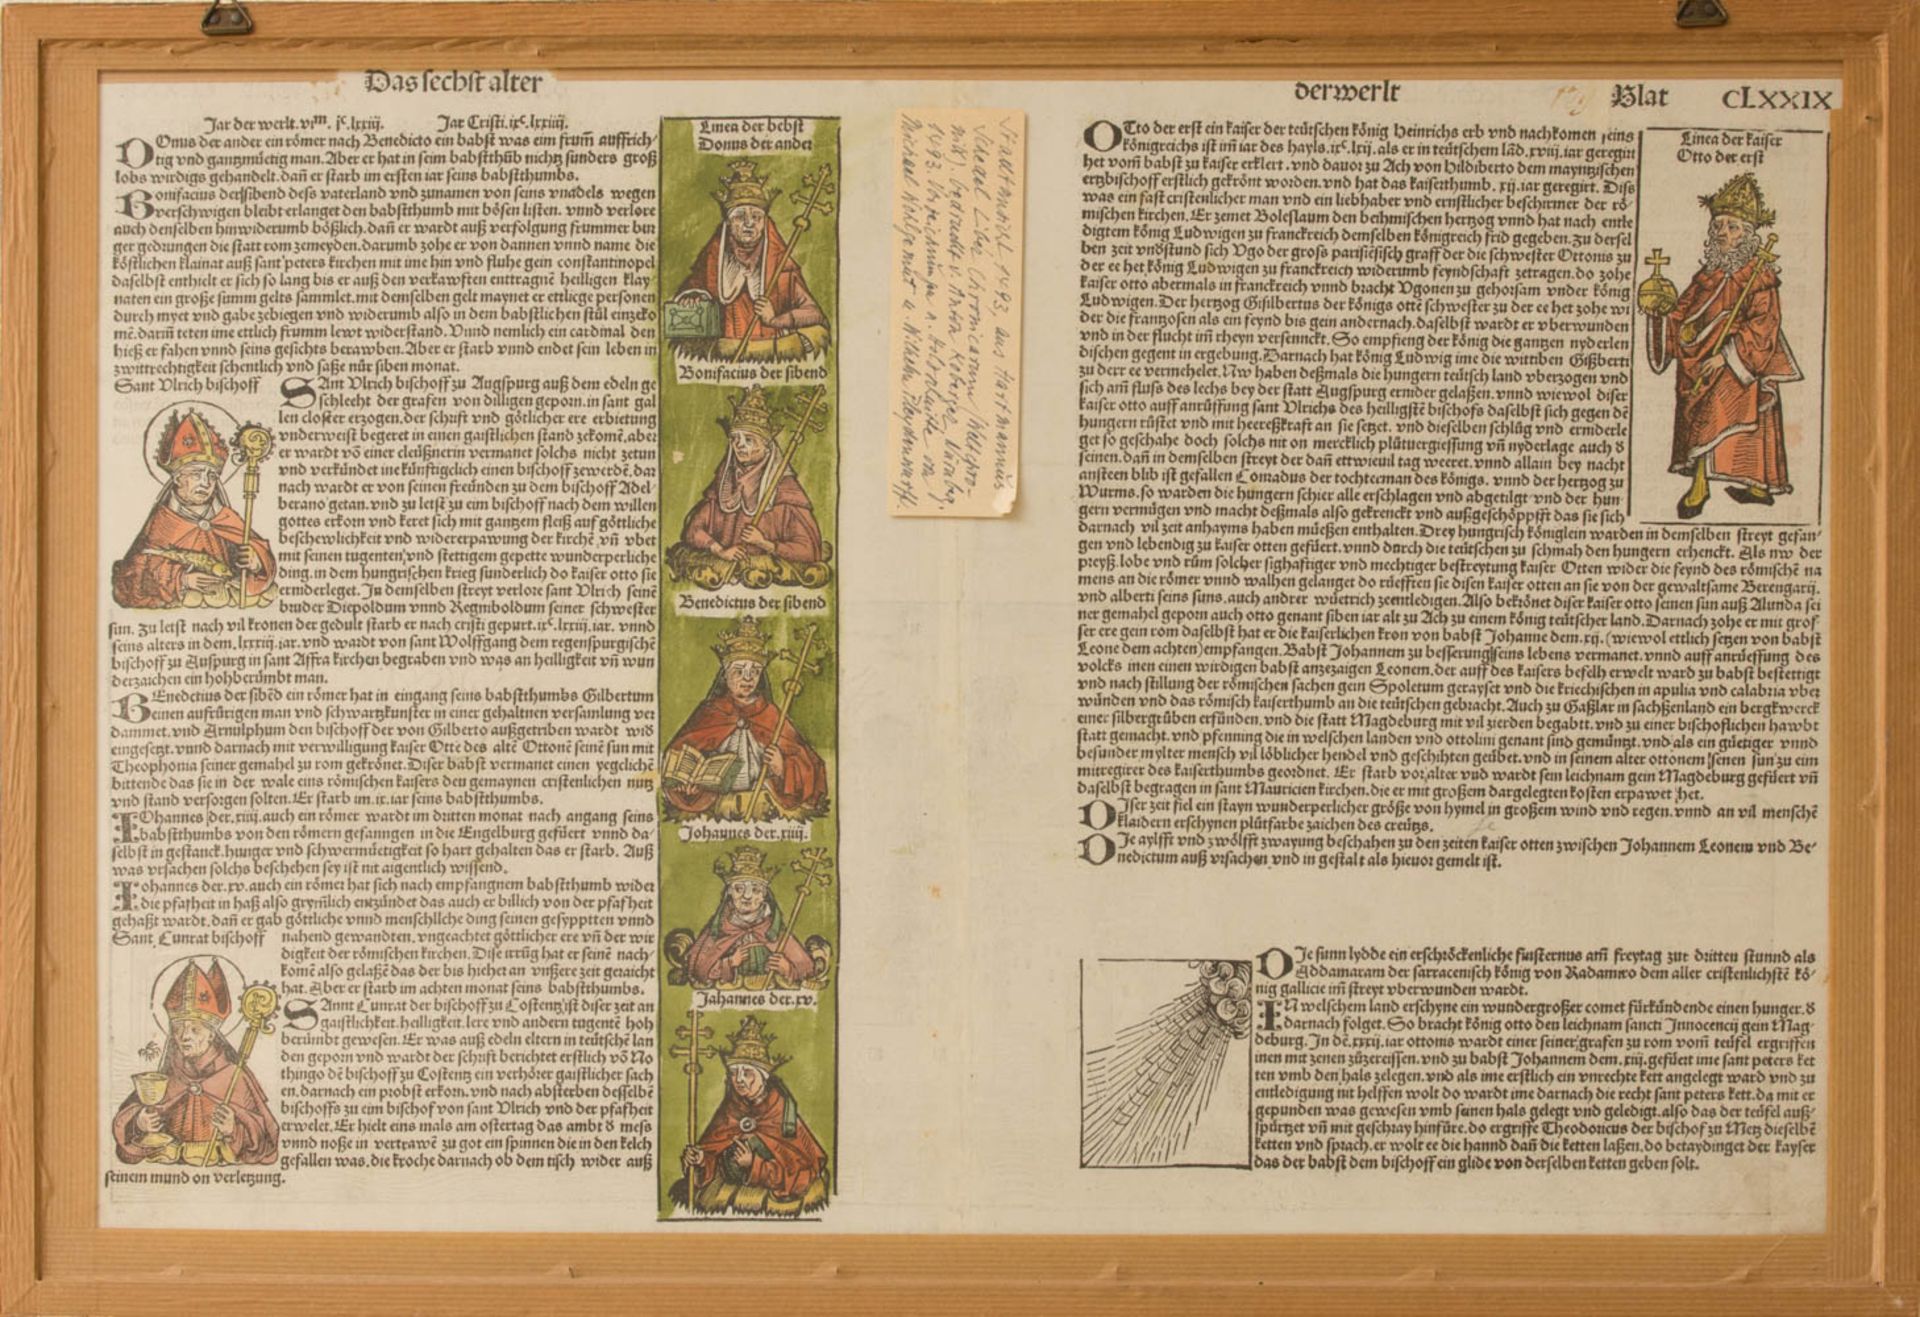 Das sechst alter
Jar der werlt. vjm. jc. lxxiij. Jar Cristi. ixc. lxxiiij.
DOnus der ander ein römer nach Benedicto ein babst was ein frum̃ auffrich-
tig vnd gantzmüetig man. Aber er hat in seim babstthůb nichtz sunders groß
lobs wirdigs gehandelt. dañ er starb im ersten iar seins babstthumbs.
Bonifacius der sibend deß vaterland vnd zunamen von seins vnadels wegen
verschwigen bleibt erlanget den babstthumb mit bösen listen. vnnd verlore
auch denselben hinwiderumb bößlich. dañ er wardt auß verfolgung frummer bur
ger gedrungen die statt rom zemeyden. darumb zohe er von dannen vnnd name die
köstlichen klainat auß sant peters kirchen mit ime hin vnd fluhe gein constantinopel
daselbst enthielt er sich so lang bis er auß den verkawften enttragnẽ heilligen klay
naten ein große summ gelts sammlet. mit demselben gelt maynet er ettliche personen
durch myet vnd gabe zebiegen vnd widerumb also in dem babstlichen stůl einzeko
mẽ. dariñ teten ime ettlich frumm lewt widerstand. Vnnd nemlich ein cardinal den
hieß er fahen vnnd seins gesichts berawben. Aber er starb vnnd endet sein leben in
zwittrechtigkeit schentlich vnd saße nůr siben monat.
Sant Vlrich bischoff
SAnt Vlrich bischoff zu Augspurg auß dem edeln ge
schlecht der grafen von dilligen geporn. in sant gal
len closter erzogen. der schrift vnd götlicher ere erbietung
vnderweist begeret in einen gaistlichen stand zekomẽ. aber
er wardt vö einer cleüßnerin vermanet solchs nicht zetun
vnd verkündet ine künftigclich einen bischoff zewerdẽ. dar
nach wardt er von seinen freünden zu dem bischoff Adel-
berano getan. vnd zu letst zu eim bischoff nach dem willen
gottes erkorn vnd keret sich mit gantzem fleiß auf göttliche
beschewlichkeit vnd widererpawung der kirchẽ. vñ vbet
mit seinen tugenten. vnd stettigem gepette wunderperliche
ding. in dem hungrischen krieg sunderlich do kaiser otto sie
erniderleget. In demselben streyt verlore sant Vlrich seinẽ
bruder Diepoldum vnnd Regniboldum seiner schwester
sun. Zu letst nach vil kronen der gedult starb er nach cristi gepurt. ixc. lxxiii. iar. vnnd
seins alters in dem. lxxxiij. iar. vnd wardt von sant Wolffgang dem regenspurgischẽ
bischoff zu Auspurg in sant Affra kirchen begraben vnd was an heilligkeit vñ wun
derzaichen ein hohberümbt man.
BEnedictus der sibẽd ein römer hat in eingang seins babstthumbs Gilbertum
einen aufrürigen man vnd schwartzkunster in einer gehaltnen versamlung ver
dammet. vnd Arnulphum den bischoff der von Gilberto außgetriben wardt wid
eingesetzt. vnnd darnach mit verwilligung kaiser Otte des altẽ Ottonẽ seinẽ sun mit
Theophonia seiner gemahel zu rom gekrönet. Diser babst vermanet einen yegclichẽ
bittende das sie in der wale eins römischen kaisers den gemaynen cristenlichen nutz
vnd stand versorgen solten. Er starb im. ix. iar seins babstthumbs.
IOhannes der. xiiij. auch ein römer wardt im dritten monat nach angang seins
babstthumbs von den römern gefanngen in die Engelburg gefüert vnnd da-
selbst in gestanck. hunger vnd schwermüetigkeit so hart gehalten das er starb. Auß
was vrsachen solchs beschehen sey ist nit aigentlich wissend.
Iohannes der. xv. auch ein römer hat sich nach empfangnem babstthumb wider
die pfafheit in haß also grym̃lich entzündet das auch er billich von der pfafheit
gehaßt wardt. dañ er gab göttliche vnnd menschlliche ding seinen gesypptten vnnd
Sant Cunrat bischoff
nahend gewandten. vngeachtet göttlicher ere vñ der wir
digkeit der römischen kirchen. Dise irrũg hat er seinẽ nach-
komẽ also gelaßẽ das der bis hieher an vnßere zeit geraicht
hat. Aber er starb im achten monat seins babstthumbs.
SAnnt Cunrat der bischoff zu Costentz ist diser zeit an
gaistlichkeit. heilligkeit. lere vnd andern tugentẽ hoh
berümbt gewesen. Er was auß edeln eltern in teütschẽ lan
den geporn vnd wardt der schrift berichtet erstlich vö No
thingo dẽ bischoff zu Costentz ein verhörer gaistlicher sach
en. darnach ein probst erkorn. vnd nach absterben desselbẽ
bischoffs zu eim bischof von sant Vlrich vnd der pfafheit
erwelet. Er hielt eins mals am ostertag das ambt d mess
vnnd noße in vertrawẽ zu got ein spinnen die in den kelch
gefallen was. die kroche darnach ob dem tisch wider auß
seinem mund on verletzung.
Linea der bebst
Donus der ander
Bonifacius der sibend
Benedictus der sibend
Johannes der. xiiij.
Jahannes der. xv.
Stadtansicht 1493, aus Hartmannus
Schedel Liber Chronicarum / Weltchro-
nik. Gedruckt v. Anton Koberger Nürnbg.
1493. Verzeichnung u. Holzschnitte von
Michael Wolgemut u. Wilhelm Pleydenwurff.
der werlt Blat CLXXIX
OTto der erst ein kaiser der teütschen könig Heinrichs erb vnd nachkomen seins
königreichs ist im̃ iar des hayls. ixc. lxij. als er in teütschem lãd. xviij. iar geregirt
het vom̃ babst zu kaiser erklert. vnd dauor zu Ach von Hildiberto dem mayntzischen
ertzbischoff erstlich gekrönt worden. vnd hat das kaiserthumb. xij. iar geregirt. Diss
was ein fast cristenlicher man vnd ein liebhaber vnd ernstlicher beschirmer der rö-
mischen kirchen. Er zemet Boleslaum den beheimischen hertzog vnnd hat nach entle
digtem könig Ludwigen zu franckreich demselben königreich frid gegeben. Zu dersel
ben zeit vndstund sich Vgo der groß parisiesisch graff der die schwester Ottonis zu
der ee het könig Ludwigen zu franckreich widerumb feyndschaft zetragen. do zohe
kaiser otto abermals in franckreich vnnd bracht Vgonen zu gehorsam vnder könig
Ludwigen. Der hertzog Gisilbertus der königs ottẽ schwester zu der ee het zohe wi
der die frantzosen als ein feynd bis gein andernach. daselbst wardt er vberwunden
vnd in der flucht im̃ rheyn versennckt. So empfieng der könig die gantzen nyderlen
dischen gegent in ergebung. Darnach hat könig Ludwig ime die wittiben Gißberti
zu derr ee vermehelet. Nw haben deßmals die hungern teütsch land vberzogen vnd
sich am̃ fluß des lechs bey der statt Augspurg ernider gelaßen. vnnd wiewol diser
kaiser otto auff anrüffung sant Vlrichs des heilligstẽ bischofs daselbst sich gegen dẽ
hungern rüstet vnd mit heereßkraft an sie setzet. vnd dieselben schlüg vnd erniderle
get so geschahe doch solchs nit on mercklich plůtuergiessung vñ nyderlage auch d
seinen. dañ in demselben streyt der dañ ettwieuil tag weeret. vnnd allain bey nacht
ansteen blib ist gefallen Conradus der tochterman des königs. vnnd der hertzog zu
Wurms. so warden die hungern schier alle erschlagen vnd abgetilgt vnd der hun-
gern vermügen vnd macht deßmals also gekrenckt vnd außgeschöppfft das sie sich
darnach vil zeit anhayms haben müeßen enthalten. Drey hungrisch königlein warden in demselben streyt gefan-
gen vnd lebendig zu kaiser otten gefüert. vnnd durch die teütschen zu schmah den hungern erhenckt. Als nw der
preyß. lobe vnd rům solcher sighaftiger vnd mechtiger bestreytung kaiser Otten wider die feynd des römischẽ na
mens an die römer vnnd walhen gelanget do rüefften sie disen kaiser otten an sie von der gewaltsame Berengarij.
vnd alberti seins suns. auch andrer wüetrich zeentledigen. Also bekrönet diser kaiser otto seinen sun auß Alunda sei
ner gemahel geporn auch otto genant siben iar alt zu Ach zu einem könig teütscher land. Darnach zohe er mit gros-
ser ere gein rom daselbst hat er die kaiserlichen kron von babst Johanne dem. xij. (wiewol ettlich setzen von babst
Leone dem achten) empfangen. Babst Johannem zu besserung seins lebens vermanet. vnnd auff anrüeffung des
volcks inen einen wirdigen babst anzezaigen Leonem. der auff des kaisers befelh erwelt ward zu babst bestettigt
vnd nach stillung der römischen sachen gein Spoletum gerayset vnd die kriechischen in apulia vnd calabria vber
wunden vnd das römisch kaiserthumb an die teütschen gebracht. Auch zu Gaßlar in sachßenland ein bergkwerck
einer silbergrůben erfünden. vnd die statt Magdeburg mit vil zierden begabtt. vnd zu einer bischoflichen hawbt
statt gemacht. vnd pfenning die in welschen landen vnd ottolini genant sind gemüntzt. vnd als ein güetiger vnnd
besunder mylter mensch vil löblicher hendel vnd geschihten geübet. vnd in seinem alter ottonem seinen sun zu eim
mitregirer des kaiserthumbs geordnet. Er starb vor alter vnd wardt sein leichnam gein Magdeburg gefüert vñ
daselbst begragen in sant Mauricien kirchen. die er mit großem dargelegten kosten erpawet het.
DIser zeit fiel ein stayn wunderperlicher größe von hymel in großem wind vnd regen. vnnd an vil menschẽ
klaidern erschynen plůtfarbe zaichen des creützs.
DIe aylfft vnd zwölfft zwayung beschahen zu den zeiten kaiser otten zwischen Johannem Leonem vnd Be-
nedictum auß vrsachen vnd in gestalt als hieuor gemelt ist.
Linea der kaiser
Otto der erst
DIe sunn lydde ein erschröckenliche finsternus am̃ freytag zur dritten stunnd als
Addamaram der sarracenisch könig von Radamiro dem aller cristenlichstẽ kö-
nig gallicie im̃ streyt vberwunden wardt.
IN welschem land erschyne ein wundergroßer comet fürkündende einen hunger. d
darnach folget. So bracht könig otto den leichnam sancti Innocencij gein Mag-
deburg. In dẽ. xxxij. iar ottonis wardt einer seiner grafen zu rom vom̃ teüfel ergriffen
inen mit zenen züzereissen. vnd zu babst Johannem dem. xiij. gefüert ime sant peters ket
ten vmb den hals zelegen. vnd als ime erstlich ein vnrechte kett angelegt ward vnd zu
entledigung nit helffen wolt do wardt ime darnach die recht sant peters kett. da mit er
gepunden was gewesen vmb seinen hals gelegt vnd geledigt. also das der teüfel auß-
spürtzet vñ mit geschray hinfüre. do ergriffe Theodoricus der bischof zu Metz dieselbẽ
ketten vnd sprach. er wolt ee die hannd dañ die ketten laßen. do betaydinget der kayser
das der babst dem bischoff ein glide von derselben ketten geben solt.